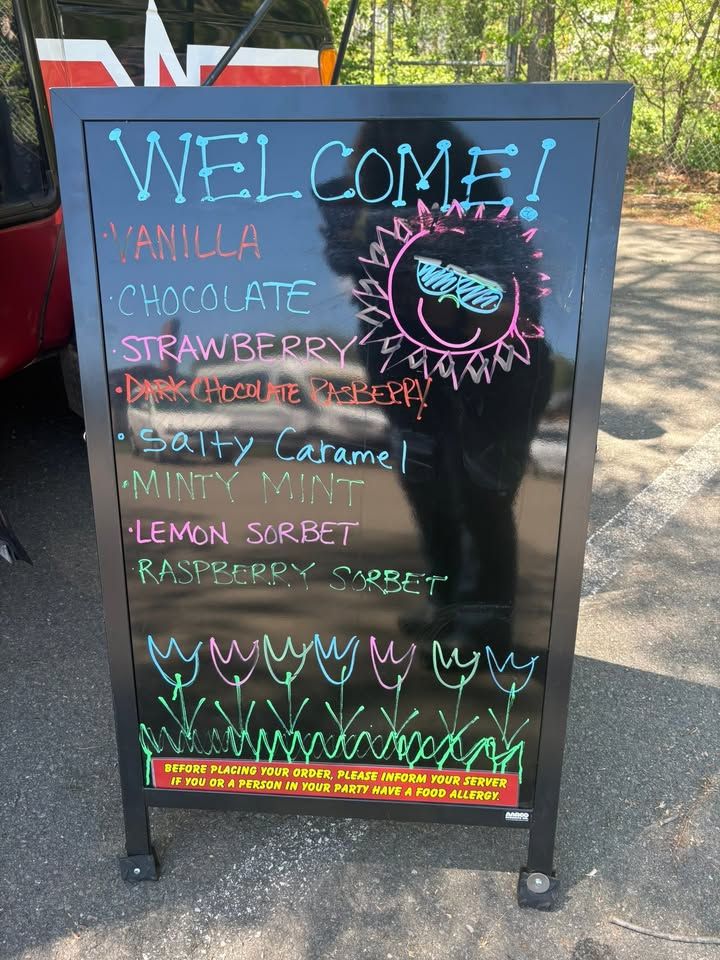 WELCOME!
·VANILLA
·CHOCOLATE
·STRAWBERRY
·DARK CHOCOLATE RASBERRY
·Salty Caramel
·MINTY MINT
·LEMON SORBET
·RASPBERRY SORBET
BEFORE PLACING YOUR ORDER, PLEASE INFORM YOUR SERVER
IF YOU OR A PERSON IN YOUR PARTY HAVE A FOOD ALLERGY.
AARCO